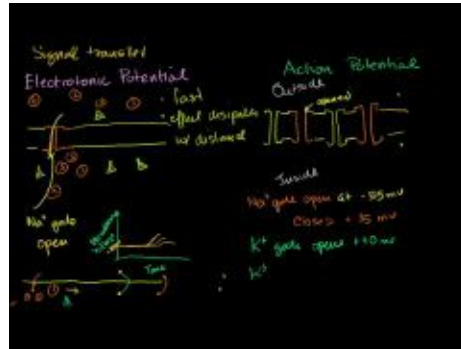 Signal transfer
Electrotonic Potential
• fast
• effect dissipates
w/ distance
Na+ gate
open
Time
Action Potential
Outside
Inside
Na+ gate open at -55 mv
Closes +35 mv
K+ gate opens +40 mv
K+